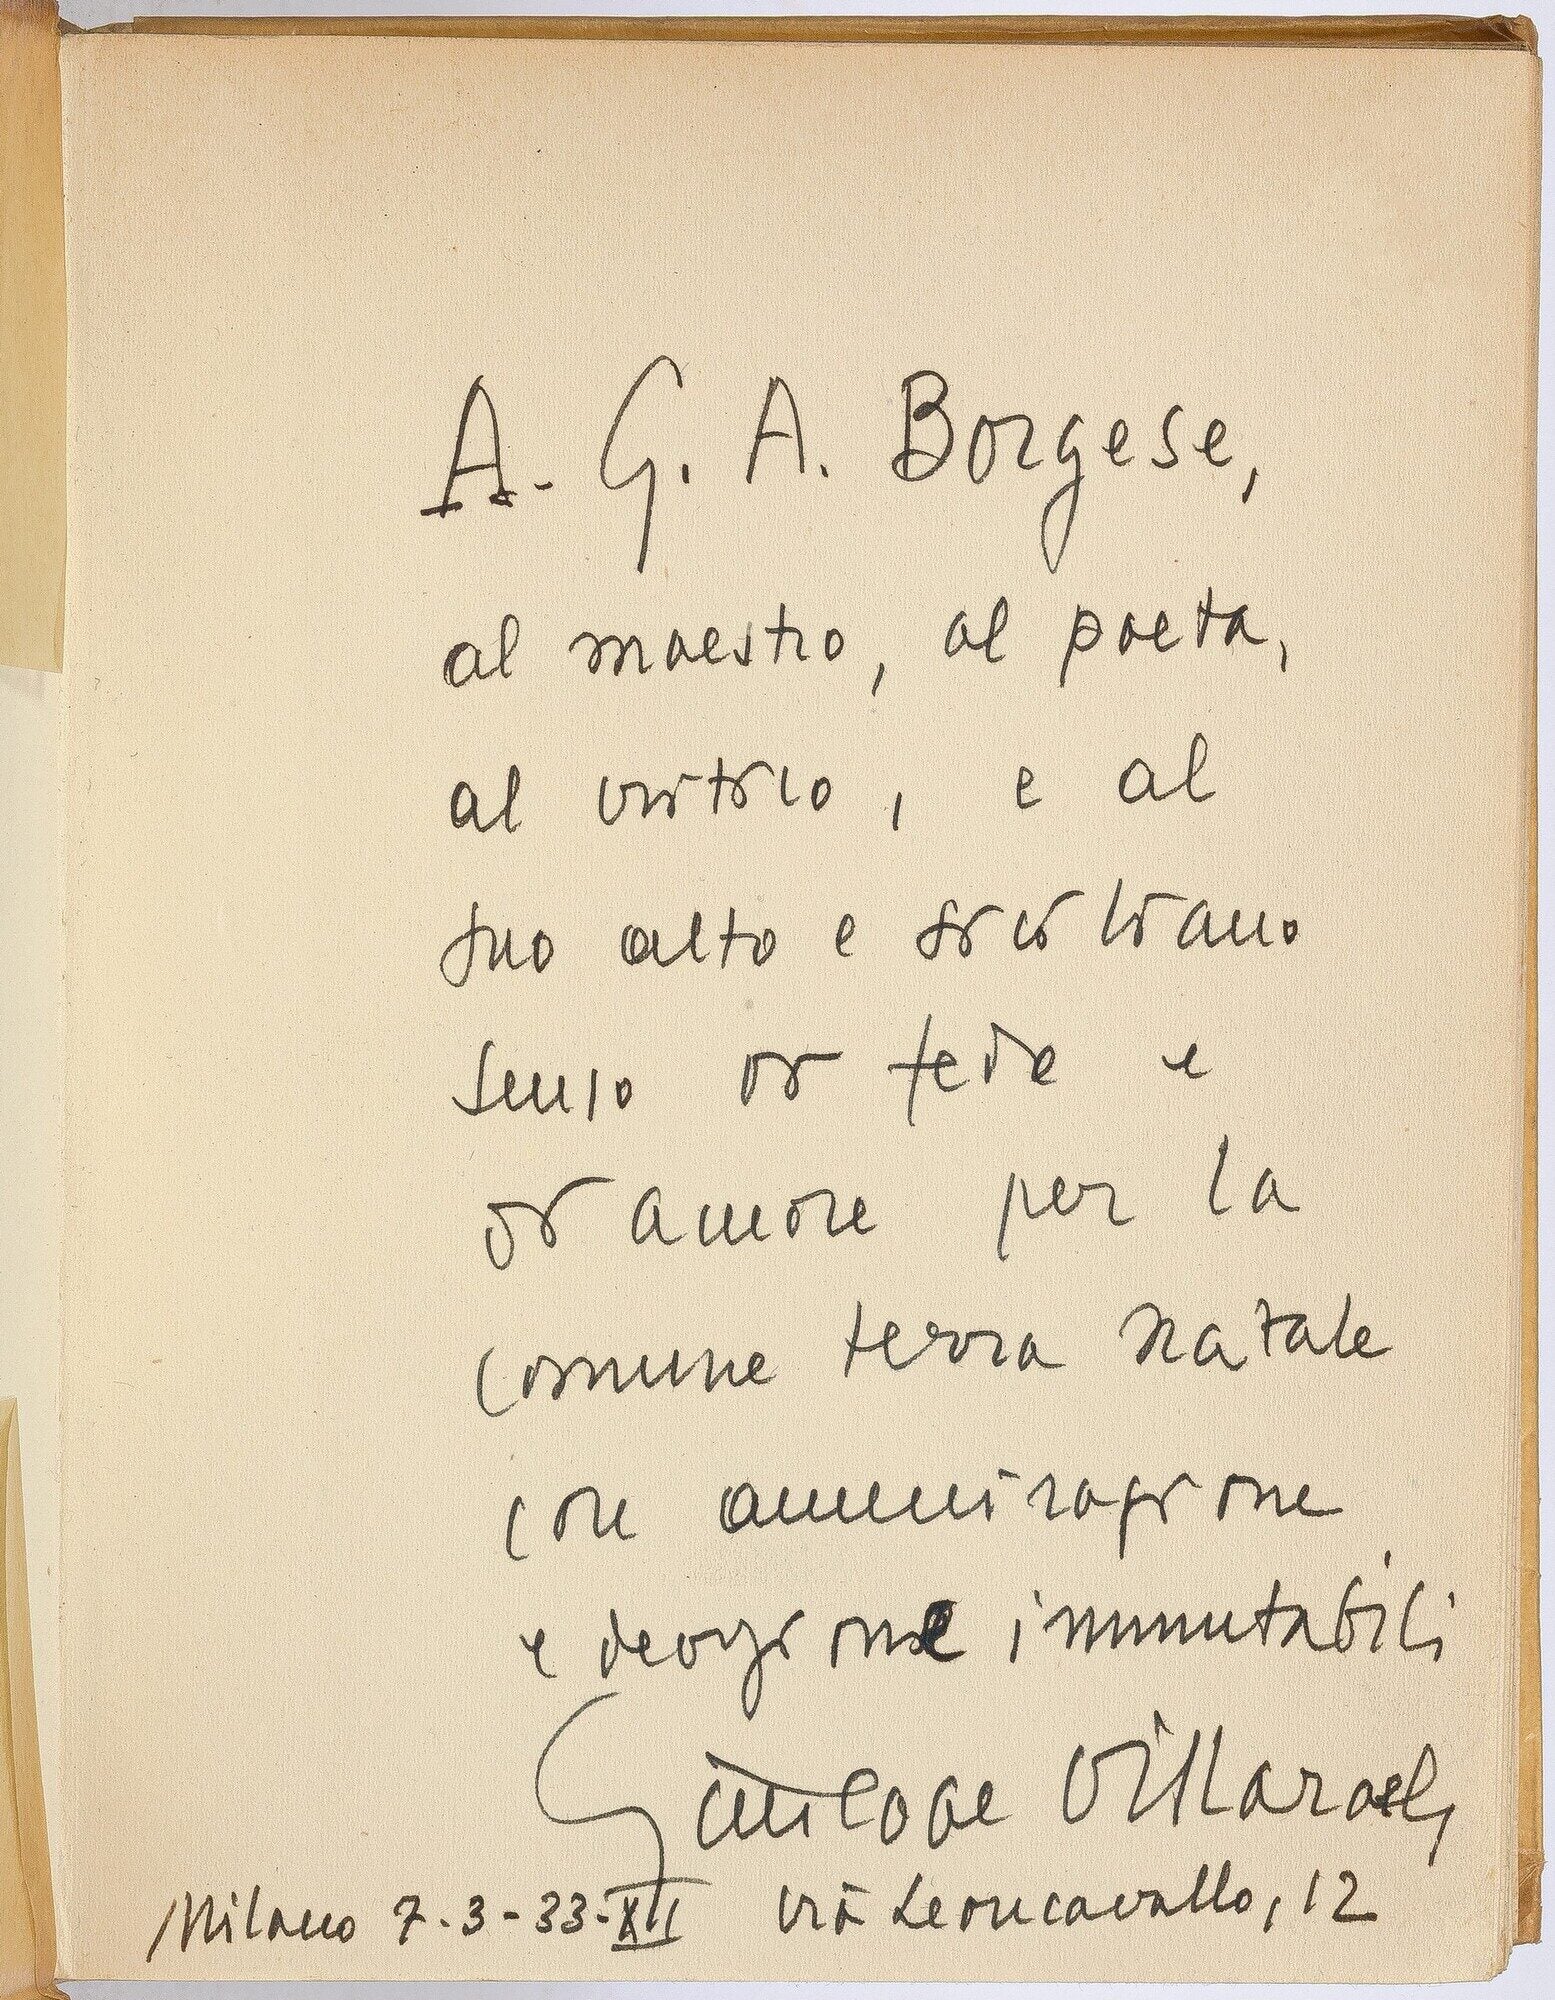 A. G. A. Borgese,
al maestro, al poeta,
al critico, e al
suo alto e siciliano
senso di fede e
di amore per la
comune terra natale
con ammirazione
e devozione immutabili
Giuseppe Villaroel,
Milano 7-3-33-XII via Leoncavallo, 12